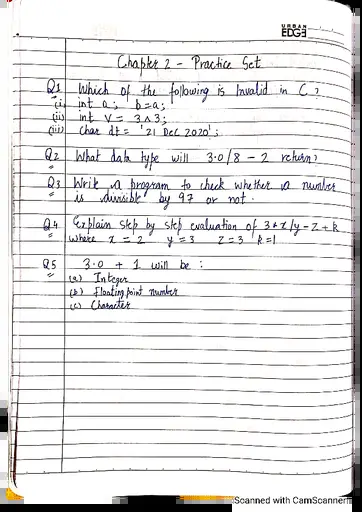 URBAN
EDGE
Chapter 2 - Practice Set
Q1 Which of the following is Invalid in C?
(i) int a; b=a;
(ii) int v = 3^3;
(iii) Char dt = '21 Dec 2020';
Q2 What data type will 3.0/8 - 2 return?
Q3 Write a program to check whether a number
is divisible by 97 or not.
Q4 Explain step by step evaluation of 3*x/y - z + k
where x = 2 y = 3 z = 3 k = 1
Q5 3.0 + 1 will be :
(a) Integer
(b) Floating point number
(c) Character
Scanned with CamScanner